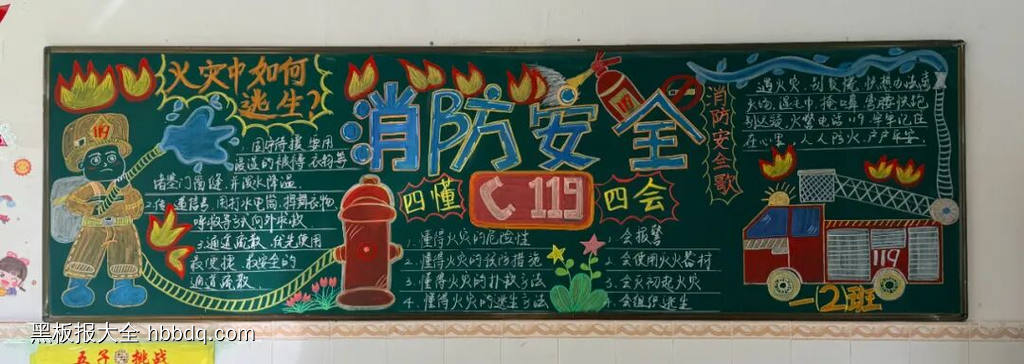 火灾中如何
逃生?
119
1.固守待援 要用
浸湿的被褥衣物等
堵塞门窗缝,并泼水降温.
呼救等引人向外求救
3.通道疏散.优先使用
最便捷.最安全的
通道疏散.
消防安全
四懂
119
四会
1.懂得火灾的危险性
2.懂得火灾的预防措施
3.懂得火灾的扑救方法
4.懂得火灾的逃生方法
1.会报警
2.会使用灭火器材
3.会灭初起火灾
4.会组织逃生
消防安全歌
遇火灾,别慌慌,快想办法离
火场,
火警电话119,牢牢记住
在心里,人人防火,户户平安.
119
一(2)班
黑板报大全 hbbdq.com
五子 挑战